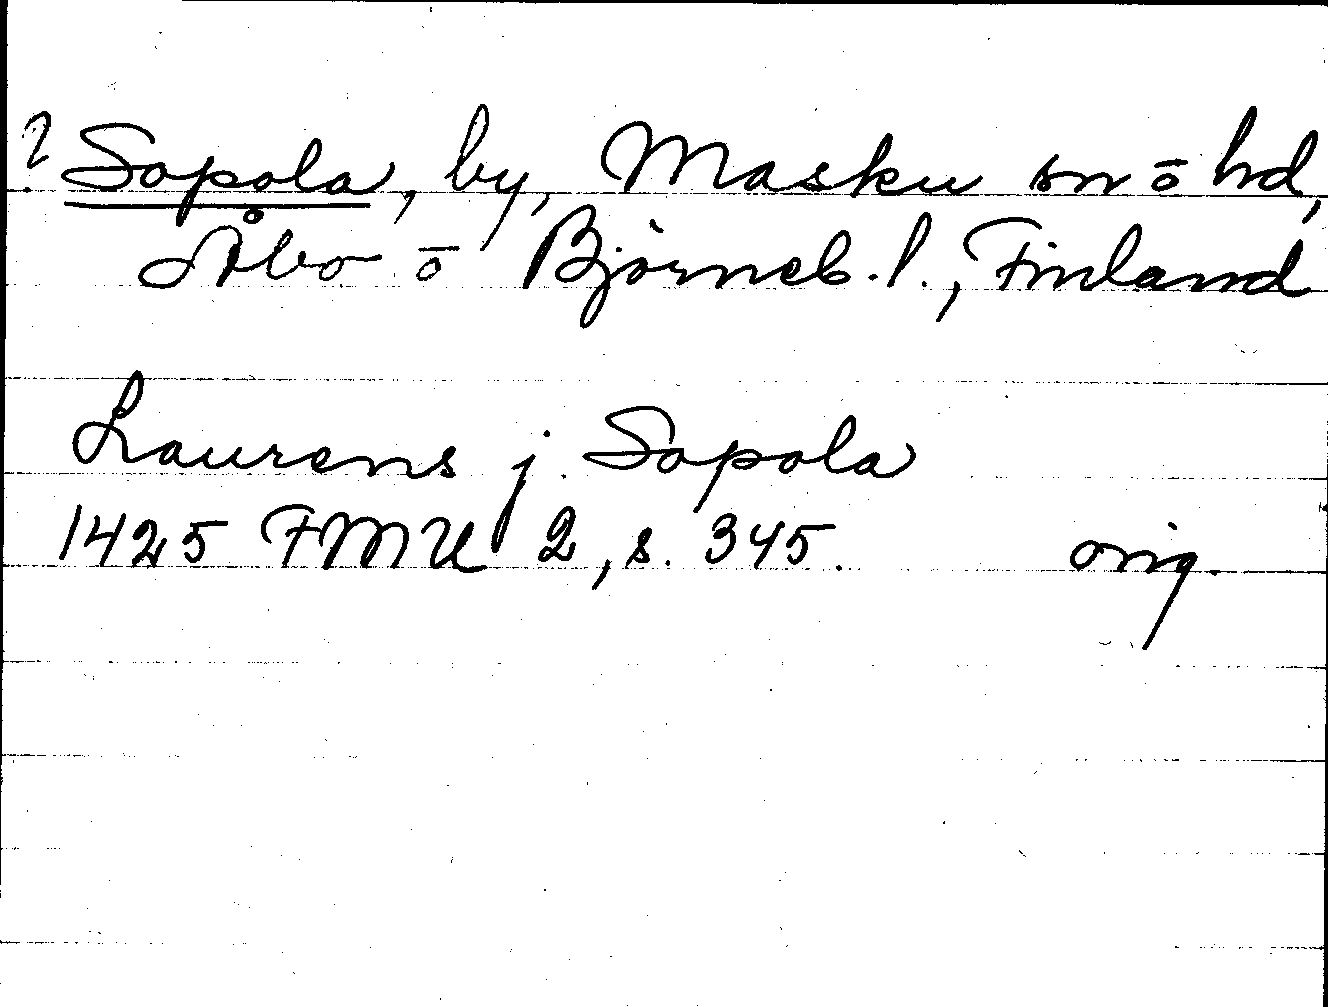 ? Sopola, by, Masku sn ō hd,
Åbo ō Björneb. l., Finland
Laurens j Sopola
1425 FMU 2, s. 345. orig.